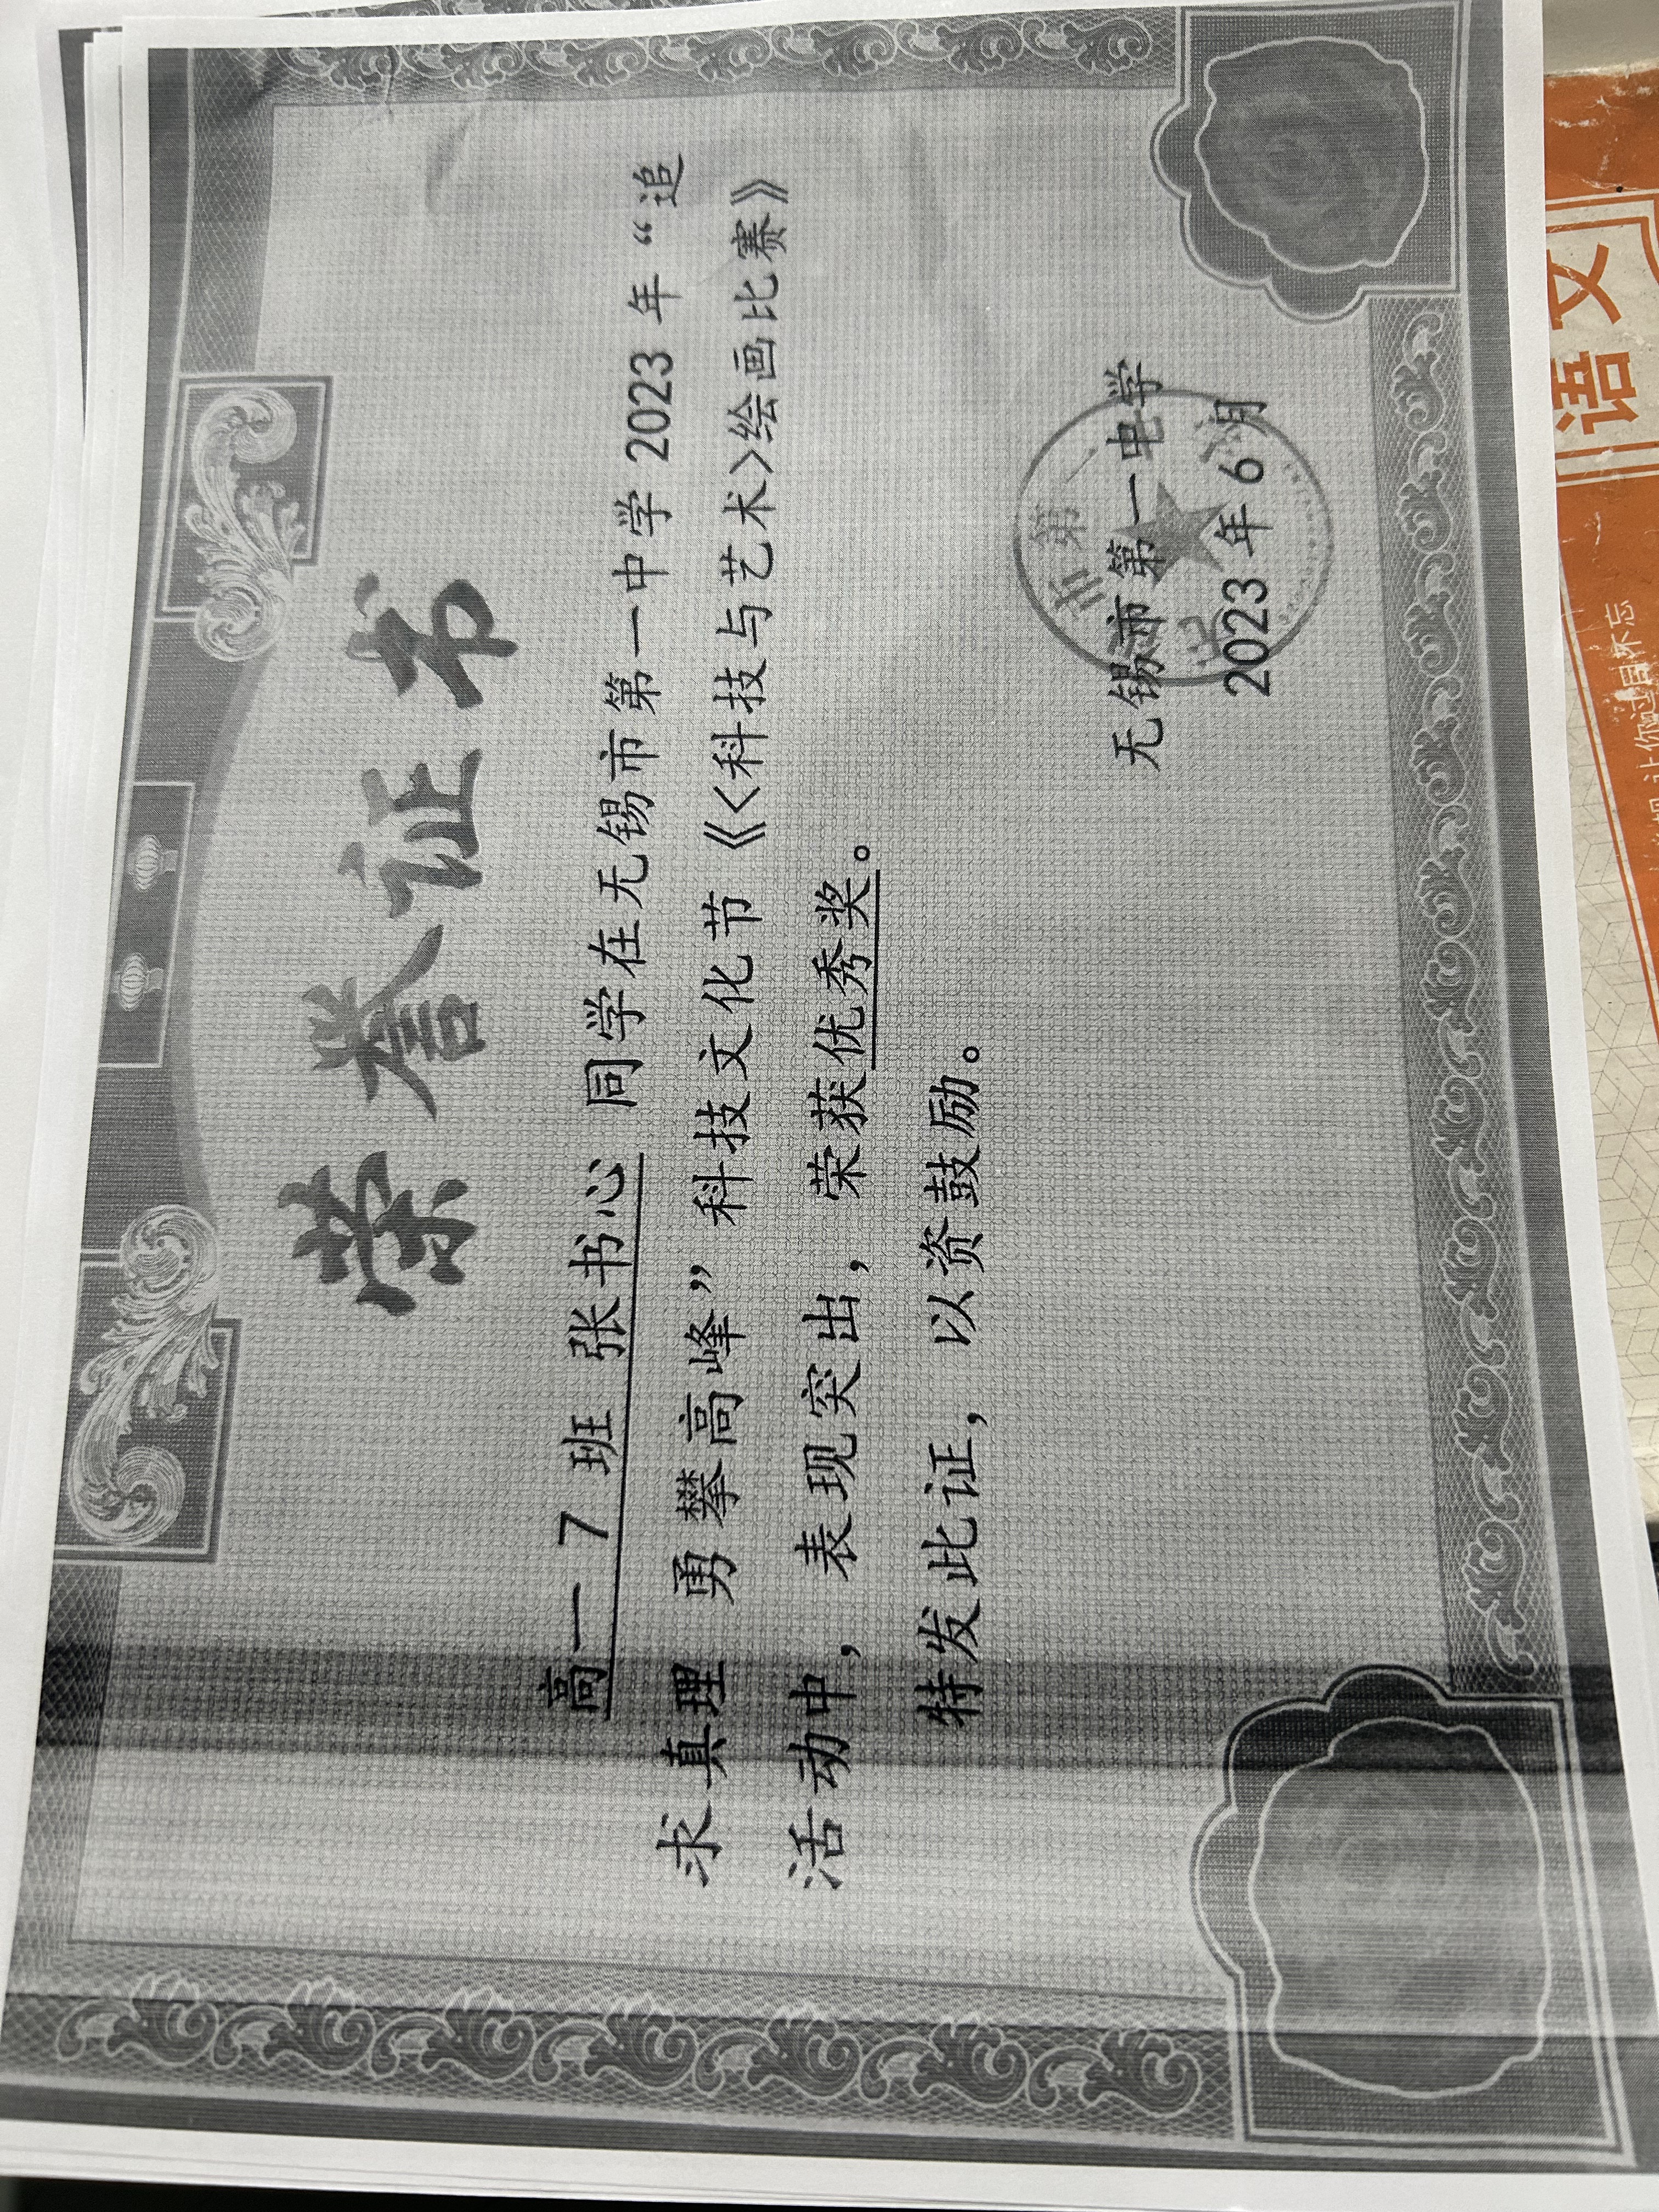 荣誉证书
高一 7 班 张书心 同学在无锡市第一中学 2023 年“追
求真理 勇攀高峰”科技文化节《<科技与艺术>绘画比赛》
活动中，表现突出，荣获优秀奖。
特发此证，以资鼓励。
无锡市第一中学
2023 年 6 月
市第一
语文